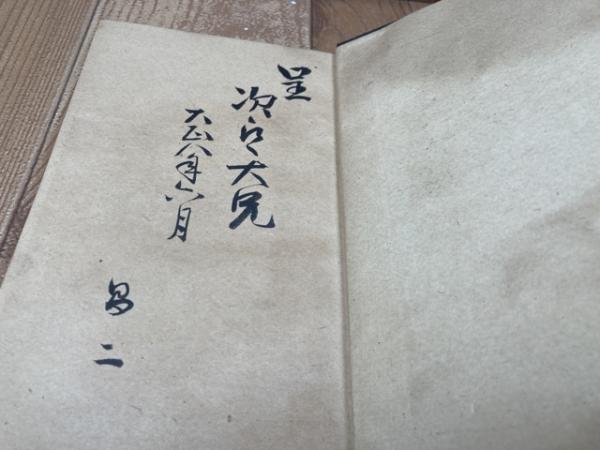 呈
次郎大兄
大正八年六月
昌二